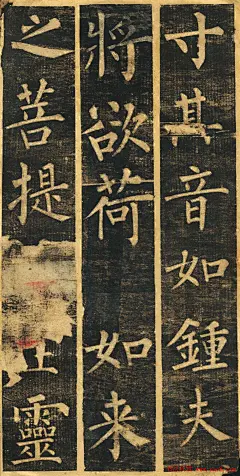 寸其音如鍾夫
將欲荷如来
之菩提靈